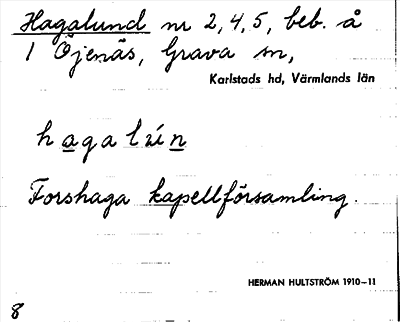 Hagalund nr 2, 4, 5, beb. å
1 Öjenäs, Grava sn,
Karlstads hd, Värmlands län
hagalún
Forshaga kapellförsamling.
HERMAN HULTSTRÖM 1910–11
8